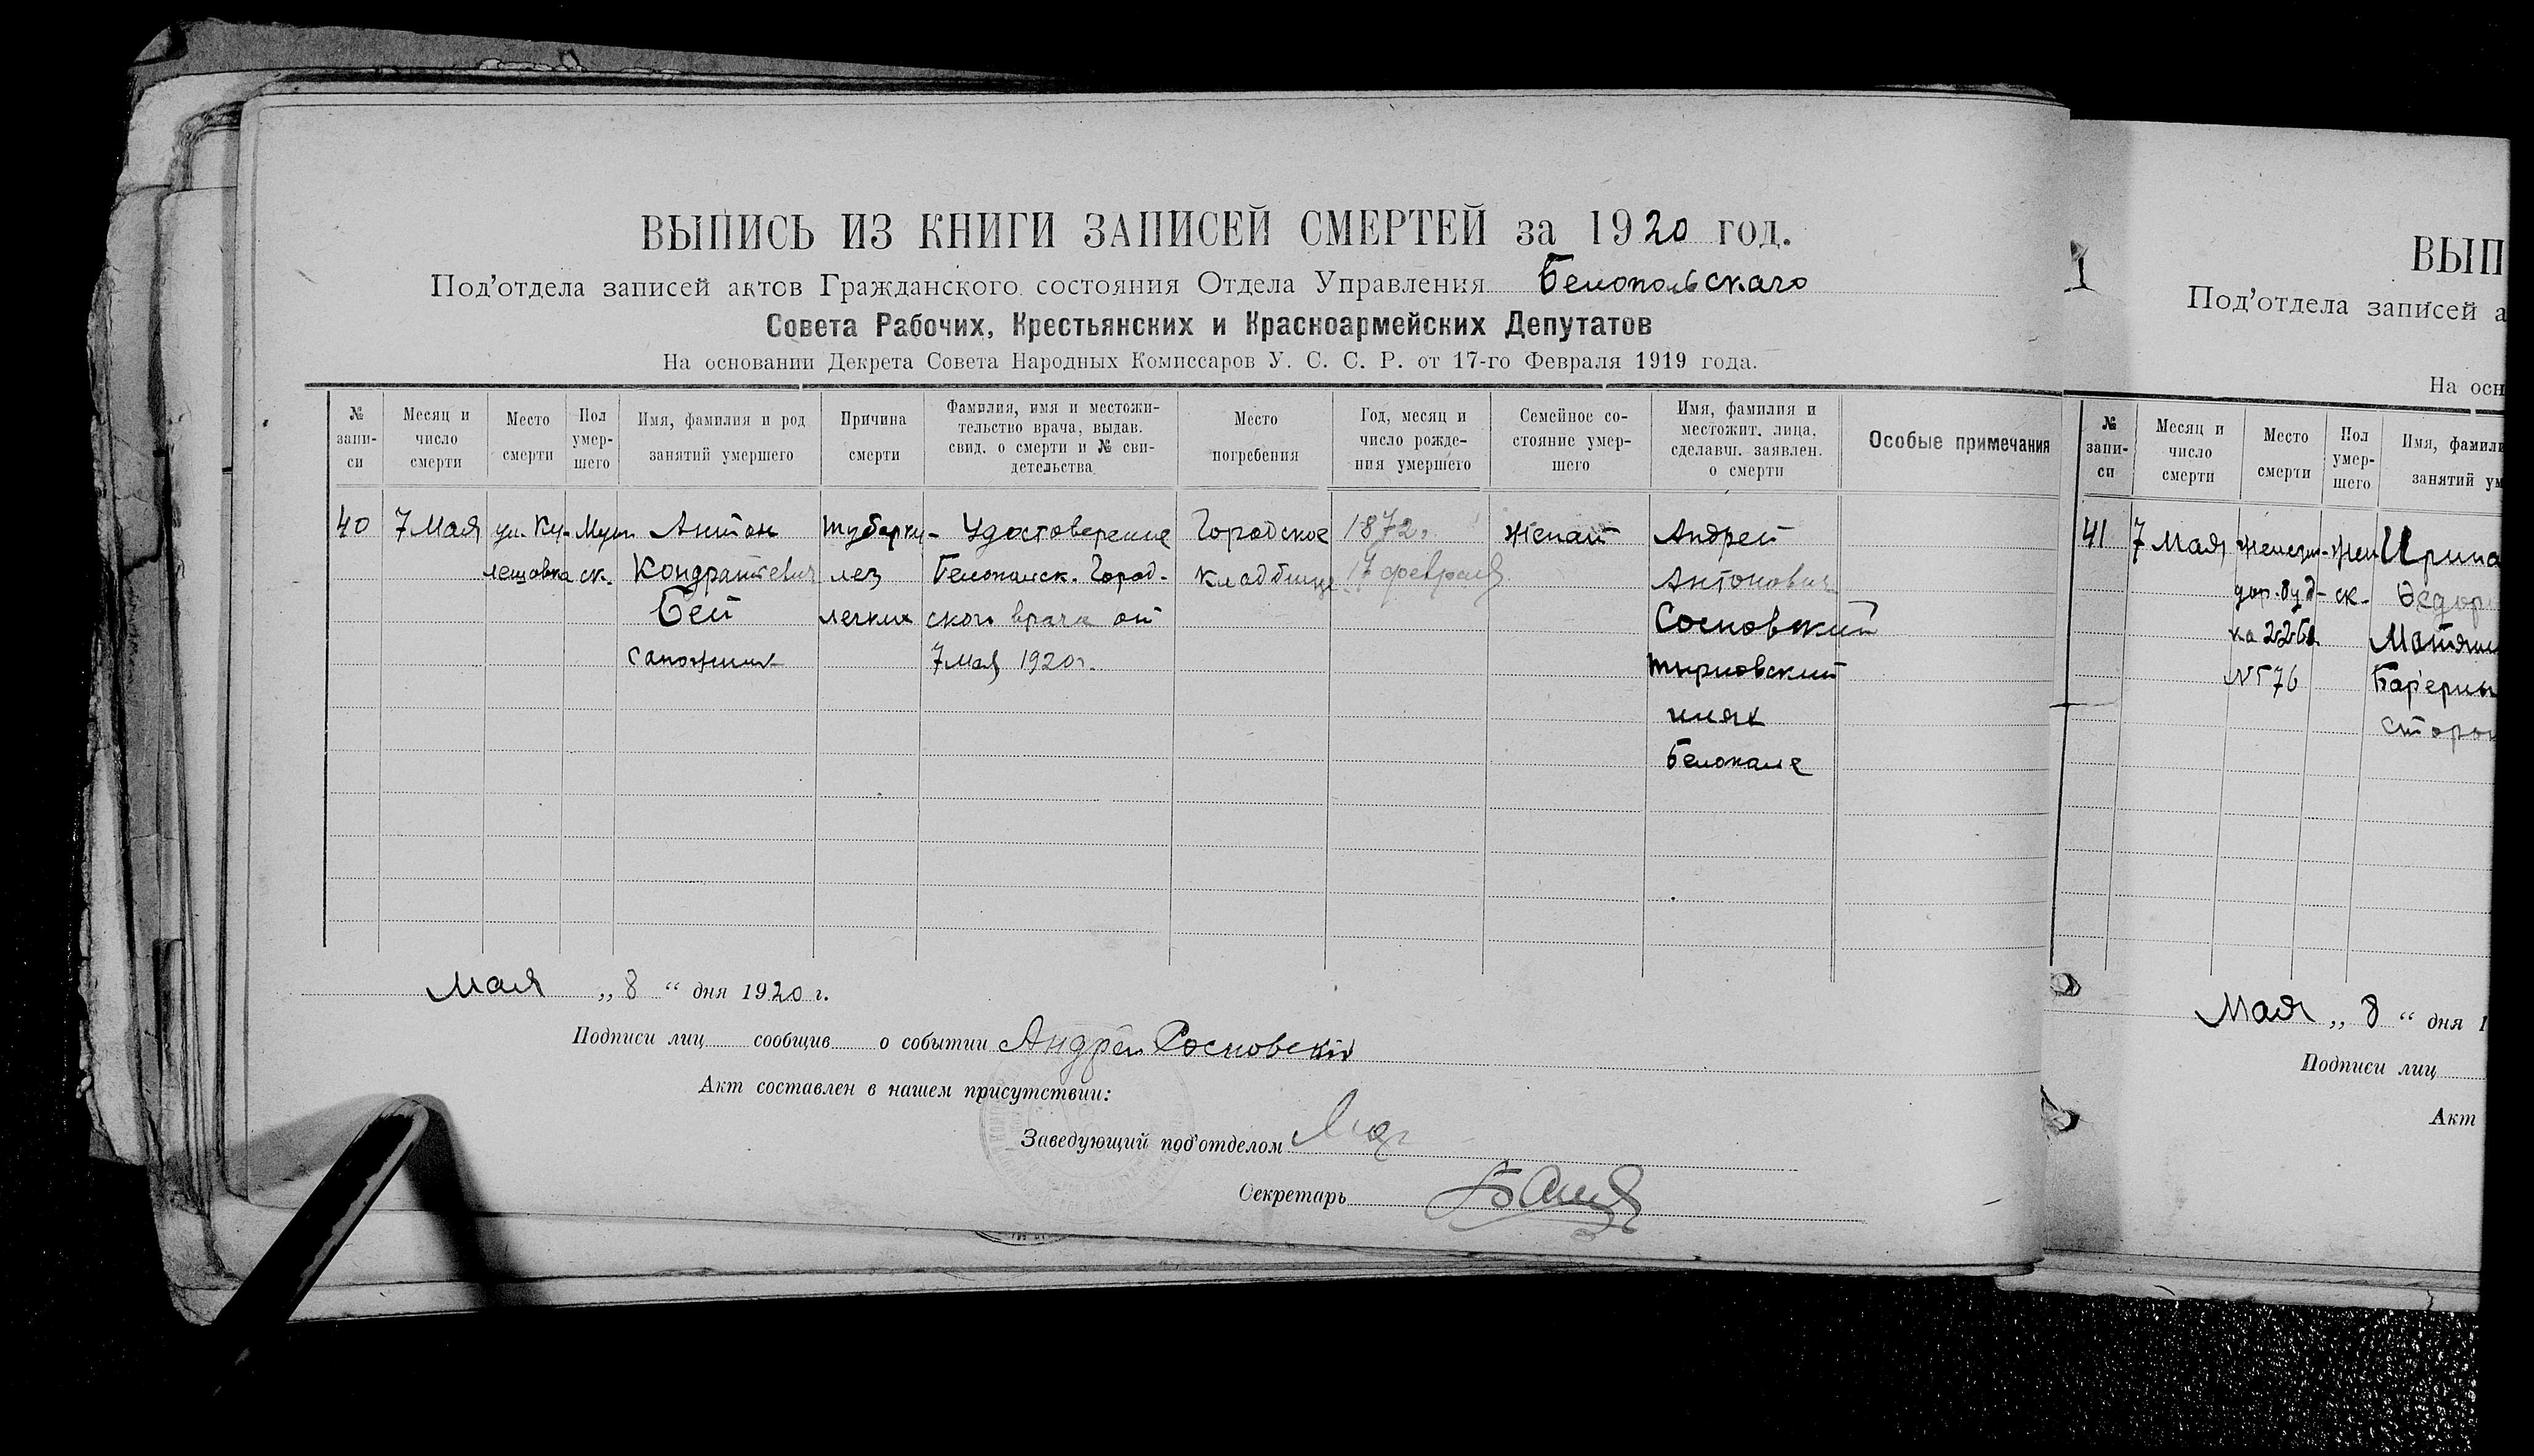 ВЫПИСЬ ИЗ КНИГИ ЗАПИСЕЙ СМЕРТЕЙ за 1920 год.
Под'отдела записей актов Гражданского состояния Отдела Управления Белопольскаго
Совета Рабочих, Крестьянских и Красноармейских Депутатов
На основании Декрета Совета Народных Комиссаров У. С. С. Р. от 17-го Февраля 1919 года.
№
запи-
си
Месяц и
число
смерти
Место
смерти
Пол
умер-
шего
Имя, фамилия и род
занятий умершего
Причина
смерти
Фамилия, имя и местожи-
тельство врача, выдав.
свид. о смерти и № сви-
детельства
Место
погребения
Год, месяц и
число рожде-
ния умершего
Семейное со-
стояние умер-
шего
Имя, фамилия и
местожит. лица,
сделавш. заявлен.
о смерти
Особые примечания
40
7 Мая
ул. Ку-
лешовка
Муж
ск.
Антон
Кондратьевич
Бей
сапожник
туберку-
лез
легких
Удостоверение
Белопольск. Город-
ского врача от
7 Мая 1920 г.
Городское
кладбище
1872 г.
17 февраля
женат
Андрей
Антонович
Сосновский
Белополье
Мая „ 8 “ дня 1920 г.
Подписи лиц сообщив о событии Андрей Сосновскій
Акт составлен в нашем присутствии:
Заведующий под'отделом
Секретарь
1
ВЫП
Под'отдела записей а
На осн
№
запи-
си
Месяц и
число
смерти
Место
смерти
Пол
умер-
шего
Имя, фамили
занятий ум
41
7 Мая
дор. буд-
ка
№ 76
Жен
ск.
Ирина
Барерный
сторож
Мая „ 8 “ дня 1
Подписи лиц
Акт